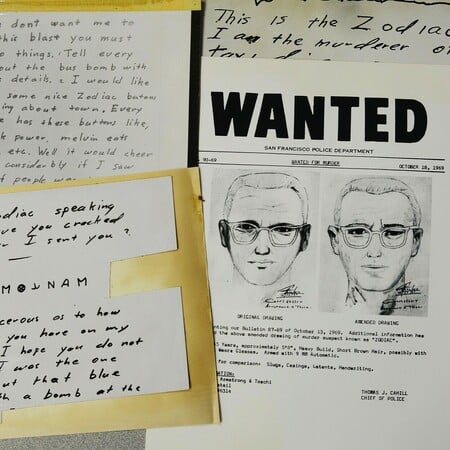 dont want me to
this blast you must
things. Tell every
out the bus bomb with
details. I would like
some nice Zodiac butons
ing about town. Every
has these buttons like,
k power, melvin eats
etc. Well it would cheer
considerably if I saw
of people
This is the Zodiac
I am the murderer of
WANTED
SAN FRANCISCO POLICE DEPARTMENT
90-69
WANTED FOR MURDER
OCTOBER 18, 1969
ORIGINAL DRAWING
AMENDED DRAWING
nting our Bulletin 87-69 of October 13, 1969. Additional information has
the above amended drawing of murder suspect known as "ZODIAC".
5 Years, approximately 5'8", Heavy Build, Short Brown Hair, possibly with
Wears Glasses. Armed with 9 MM Automatic.
for comparison: Slugs, Casings, Latents, Handwriting.
ATION:
Armstrong & Toschi
tail
96314
THOMAS J. CAHILL
CHIEF OF POLICE
odiac speaking
ave you cracked
I sent you?
M NAM
cerous as to how
you have on my
I hope you do not
I was the one
out that blue
h a bomb at the